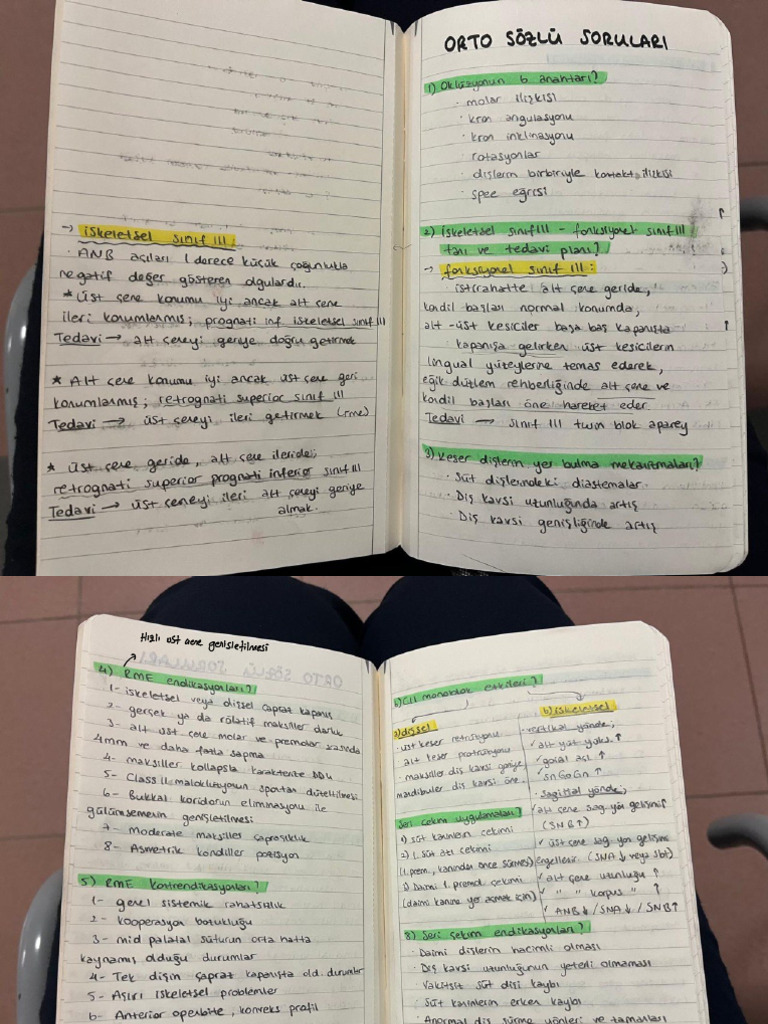 → iskeletsel sınıf III
· ANB açıları 1 derece küçük çoğunlukla
negatif değer gösteren olgulardır.
* üst çene konumu iyi ancak alt çene
ileri konumlanmış; prognati inf. iskeletsel sınıf III
Tedavi → alt çeneyi geriye doğru getirmek
* Alt çene konumu iyi ancak üst çene geri
konumlanmış; retrognati superior sınıf III
Tedavi → üst çeneyi ileri getirmek (rme)
* üst çene geride, alt çene ileride;
retrognati superior prognati inferior sınıf III
Tedavi → üst çeneyi ileri alt çeneyi geriye
almak.
ORTO SÖZLÜ SORULARI
1) Oklüzyonun 6 anahtarı?
· molar ilişkisi
· kron angulasyonu
· kron inklinasyonu
· rotasyonlar
· dişlerin birbiriyle kontakt ilişkisi
· spee eğrisi
2) İskeletsel sınıf III - fonksiyonel sınıf III
tanı ve tedavi planı?
→ fonksiyonel sınıf III:
istirahatte alt çene geride,
kondil başları normal konumda,
alt-üst kesiciler başa baş kapanışta
kapanışa gelirken üst kesicilerin
lingual yüzeylerine temas ederek,
eğik düzlem rehberliğinde alt çene ve
kondil başları öne hareket eder
Tedavi → sınıf III twin blok aparey
3) Keser dişlerin yer bulma mekanizmaları?
· Süt dişlerindeki diastemalar.
· Diş kavsi uzunluğunda artış
· Diş kavsi genişliğinde artış
Hızlı üst çene genişletilmesi
4) RME endikasyonları?
1- iskeletsel veya dişsel çapraz kapanış
2- gerçek ya da rölatif maksiller darlık
3- alt üst çene molar ve premolar arasında
4mm ve daha fazla sapma
4- maksiller kollapsla karakterize DDY
5- Class II malokluzyonun spontan düzeltilmesi
6- Bukkal koridorun eliminasyonu ile
gülümsemenin genişletilmesi
7- moderate maksiller çapraşıklık
8- Asimetrik kondiller pozisyon
5) RME kontrendikasyonları?
1- genel sistemik rahatsızlık
2- kooperasyon bozukluğu
3- mid palatal suturun orta hatta
kaynamış olduğu durumlar
4- Tek dişin çapraz kapanışta old. durumlar
5- Aşırı iskeletsel problemler
6- Anterior openbite, konveks profil
6) Cl II monoblok etkileri?
a) dişsel
· üst keser retrusyonu
alt keser protrusyonu
· maksiller diş kavsi geriye
mandibuler diş kavsi öne.
b) iskeletsel
· vertikal yönde;
✓ alt yüz yüks. ↑
✓ gonial açı ↑
✓ SnGoGn ↑
· sagittal yönde;
✓ alt çene sag. yön gelişimi ↑
(SNB ↑)
✓ üst çene sag. yön gelişimi
engellenir. (SNA ↓ veya sbt)
✓ alt çene uzunluğu ↑
✓ " " korpus " ↑
✓ ANB ↓ / SNA ↓ / SNB ↑
Seri çekim uygulamaları?
1) süt kaninlerin çekimi
2) 1. süt azı çekimi
(1. prem., kaninden önce sürmesi)
3) Daimi 1. premol. çekimi
(daimi kanine yer açmak için)
8) Seri çekim endikasyonları?
· Daimi dişlerin hacimli olması
· Diş kavsi uzunluğunun yeterli olmaması
· Vakitsiz süt dişi kaybı
· Süt kaninlerin erken kaybı
· Anormal diş sürme yönleri ve